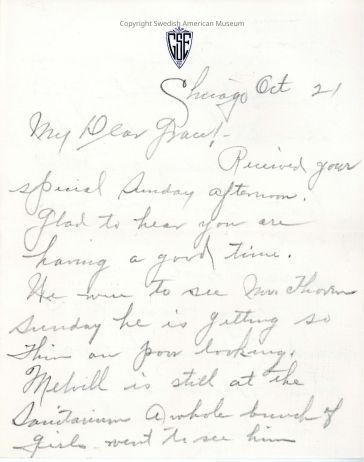 Copyright Swedish American Museum
GSE
Chicago Oct 21
My Dear Grace!-
Received your
special Sunday afternoon.
Glad to hear you are
having a good time.
We were to see Mr. Thoren
Sunday he is getting so
thin an poor looking.
Melvill is still at the
Sanitarium A whole bunch of
girls went to see him